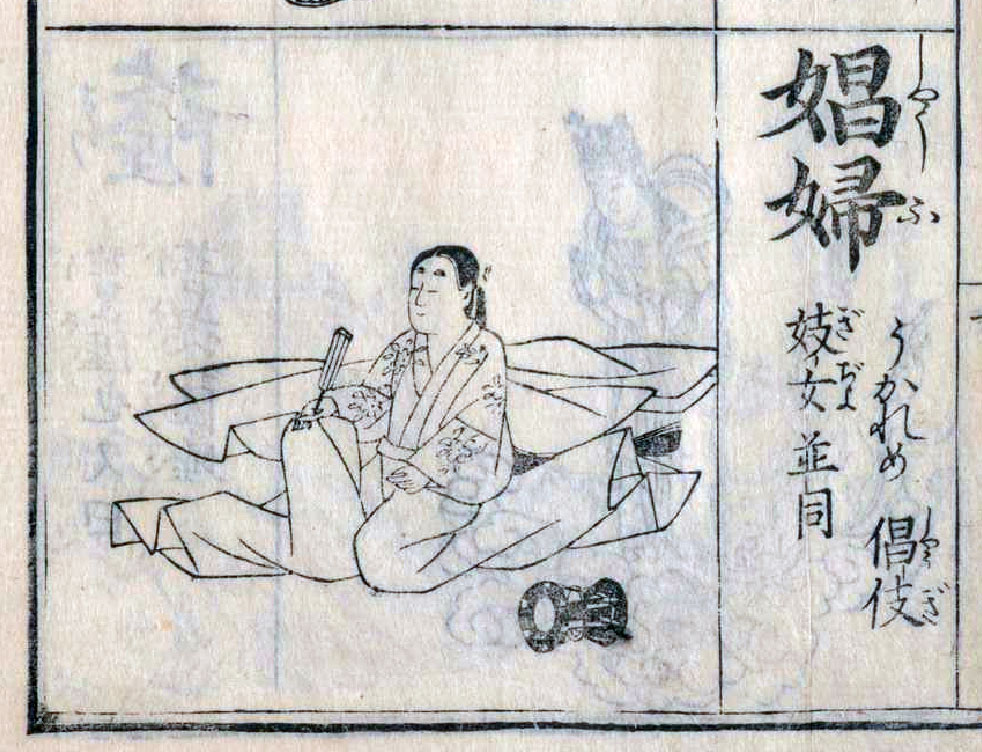 娼婦
しやうふ
うかれめ 倡伎
しやうぎ
妓女 並同
ぎぢよ